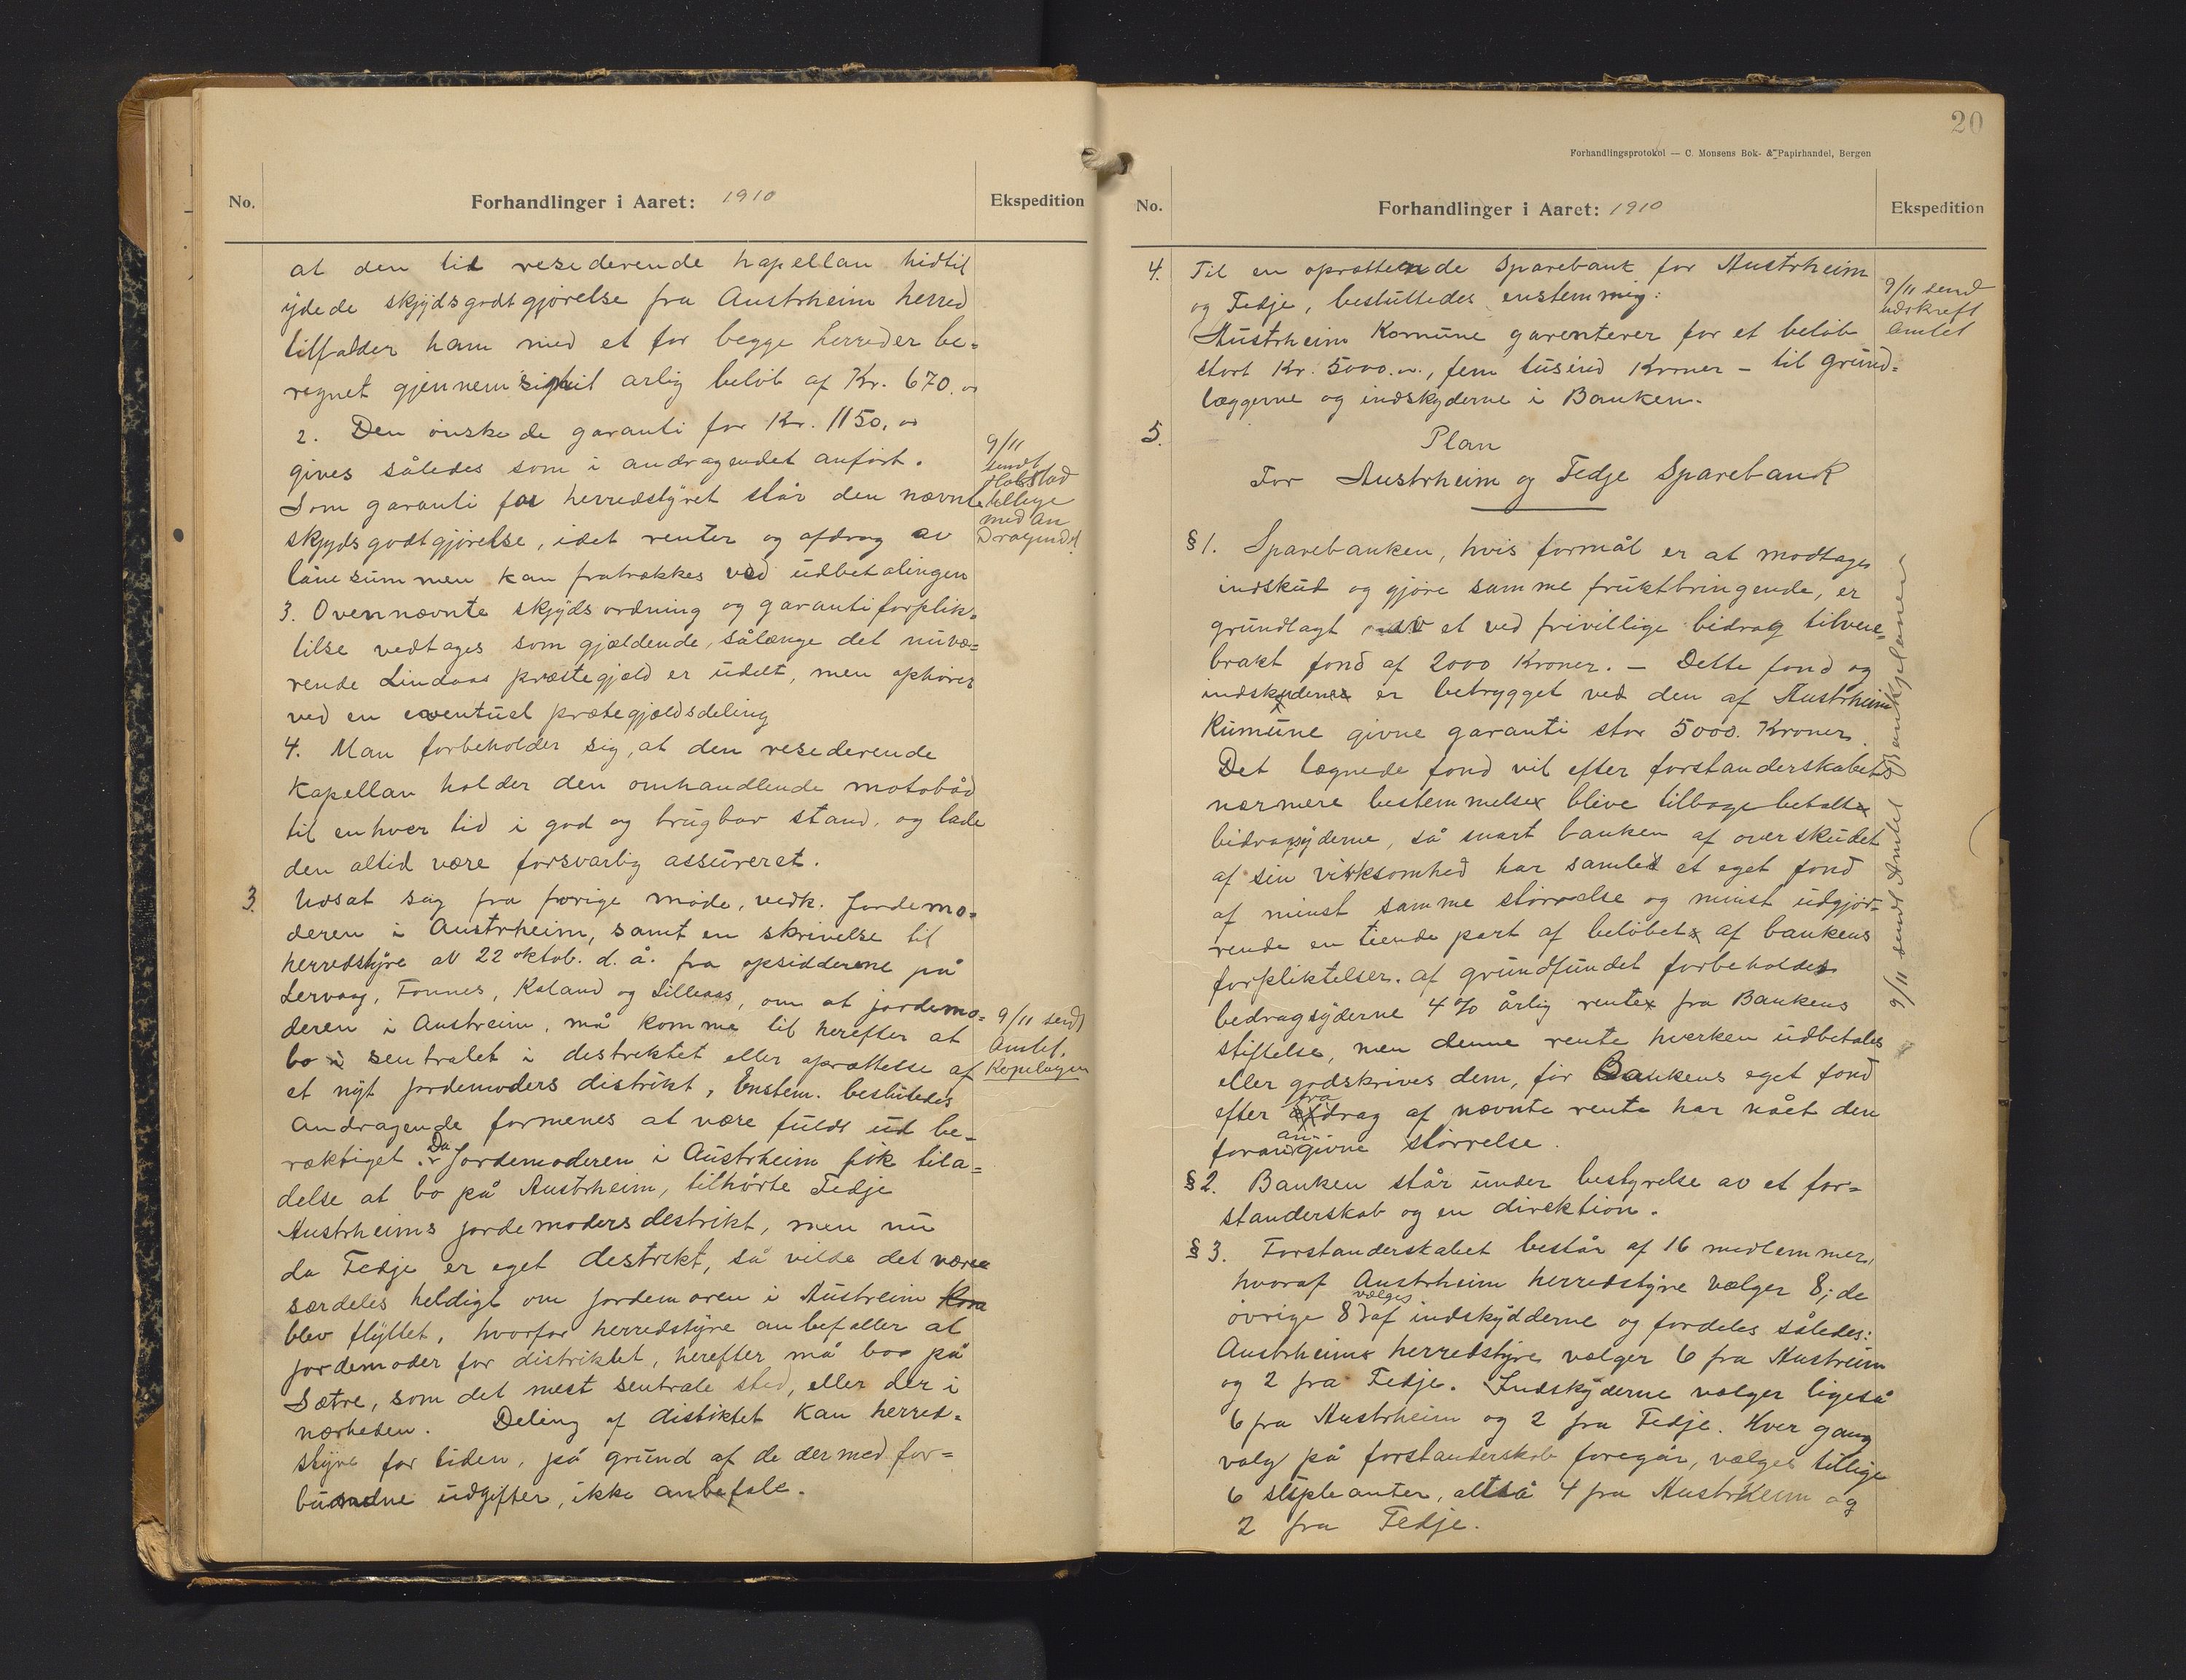 No.
Forhandlinger i Aaret: 1910
Ekspedition
at den til resederende kapellan hidtil
ydede skjydsgodtgjørelse fra Austrheim herred
tilfalder ham med et for begge herreder be=
regnet gjennemsnit arlig beløb af Kr. 670.00
2. Den ønskede garanti for Kr. 1150,00
gives således som i andragendet anført.
Som garanti for herredstyret står den nævnte
skjydsgodtgjørelse, idet renter og afdrag av
lånesummen kan fratrækkes ved udbetalingen
9/11
sendt
tillige
med An
dragendet
3. Ovennævnte skjydsordning og garantiforplik=
tilse vedtages som gjældende, sålænge det nuvæ=
rende Lindaas præstegjæld er udelt, men ophører
ved en eventuel prætegjældsdeling
4. Man forbeholder sig, at den resederende
kapellan holder den omhandlende motobåd
til enhver tid i god og brugbar stand, og lade
den altid være forsvarlig assureret.
3. Udsat sag fra forrige møde, vedk. Jordemo=
deren i Austrheim, samt en skrivelse til
herredstyre av 22 oktob. d. å. fra opsidderene på
Lervaag, Fonnes, Kaland og Lilleaas, om at jordemo=
deren i Austreim, må komme til herefter at
bo i sentralet i destrektet eller oprættelse af
et nyt jordemoders distrikt, Enstem. beslutedes
9/11 sendt
Amtet.
Kopilagen
Andragende formenes at være fuldt ud be=
ræktiget. Da Jordemoderen i Austrheim fik tila=
delse at bo på Austrheim, tilhørte Fedje
Austrheims jordemoders destrikt, men nu
da Fedje er eget destrekt, så vilde det være
særdeles heldigt om jordemoren i Austreim
blev flyttet, hvorfor herredstyre anbefaller at
jordemoder for distriktet, herefter må boo på
Sætre, som det mest sentrale sted, eller der i
nærheden. Deling af distiktet kan herred=
styre for tiden, på grund af de dermed for=
bundne udgifter, ikke anbefale.
20
Forhandlingsprotokol — C. Monsens Bok- & Papirhandel, Bergen
No.
Forhandlinger i Aaret: 1910
Ekspedition
4. Til en oprættende Sparebank for Austrheim
og Fedje, besluttedes enstemmig:
Austrheim Komune garenterer for et beløb
stort Kr. 5000.00, fem tusind Kroner – til grund=
læggerne og indskyderne i Banken.
9/11 send
udskreft
Amtet
5. Plan
For Austrheim og Fedje Sparebank
§ 1. Sparebanken, hvis formål er at modtage
indskud og gjøre samme fruktbringende, er
grundlagt av et ved frivillige bidrag tilveie=
brakt fond af 2000 Kroner. – Dette fond og
indskudene er betrygget ved den af Austrheim
Kumune givne garanti stor 5000. Kroner.
Det tegnede fond vil efter forstanderskabets
nærmere bestemmelse blive tilbagebetalt
bidragsyderne, så snart banken af overskudet
af sin virksomhed har samlet et eget fond
af minst samme størrelse og minst udgjør=
rende en tiende part af beløbet af bankens
forpliktelser. af grundfundet forbeholdes
bedragsyderne 4 % årlig rente fra Bankens
stiftelse, men denne rente hverken udbetales
eller godskrives dem, før Bankens eget fond
efter fradrag af nævnte rente har nået den
foran angivne størrelse.
9/11 sendt Amtet Bankplanen
§ 2. Banken står under bestyrelse av et for=
standerskab og en direktion.
§ 3. Forstanderskabet består af 16 medlemmer,
hvoraf Austrheim herredstyre vælger 8; de
øvrige 8 vælges af indskydderne og fordeles således:
Austrheims herredstyre vælger 6 fra Austreim
og 2 fra Fedje. Indskyderne vælger ligeså
6 fra Austrheim og 2 fra Fedje. Hver gang
valg på forstanderskab foregår, vælges tillige
6 supleanter, altså 4 fra Austrheim og
2 fra Fedje.